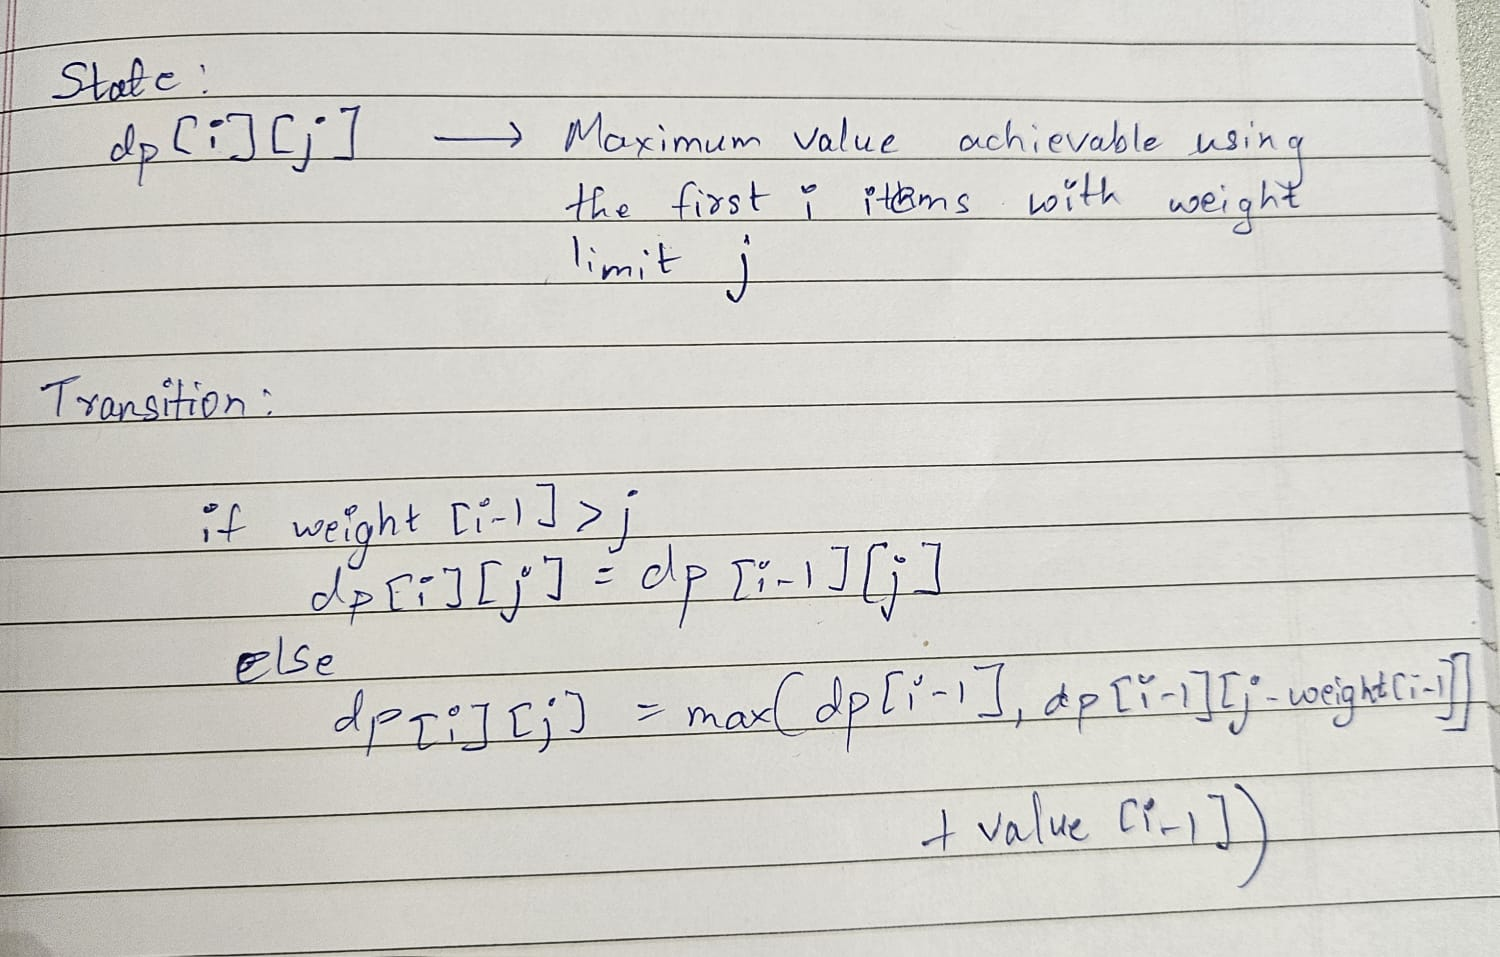 State:
dp[i][j] → Maximum value achievable using
the first i items with weight
limit j
Transition:
if weight [i-1] > j
dp[i][j] = dp [i-1][j]
else
dp[i][j] = max( dp[i-1], dp[i-1][j-weight[i-1]]
+ value [i-1])